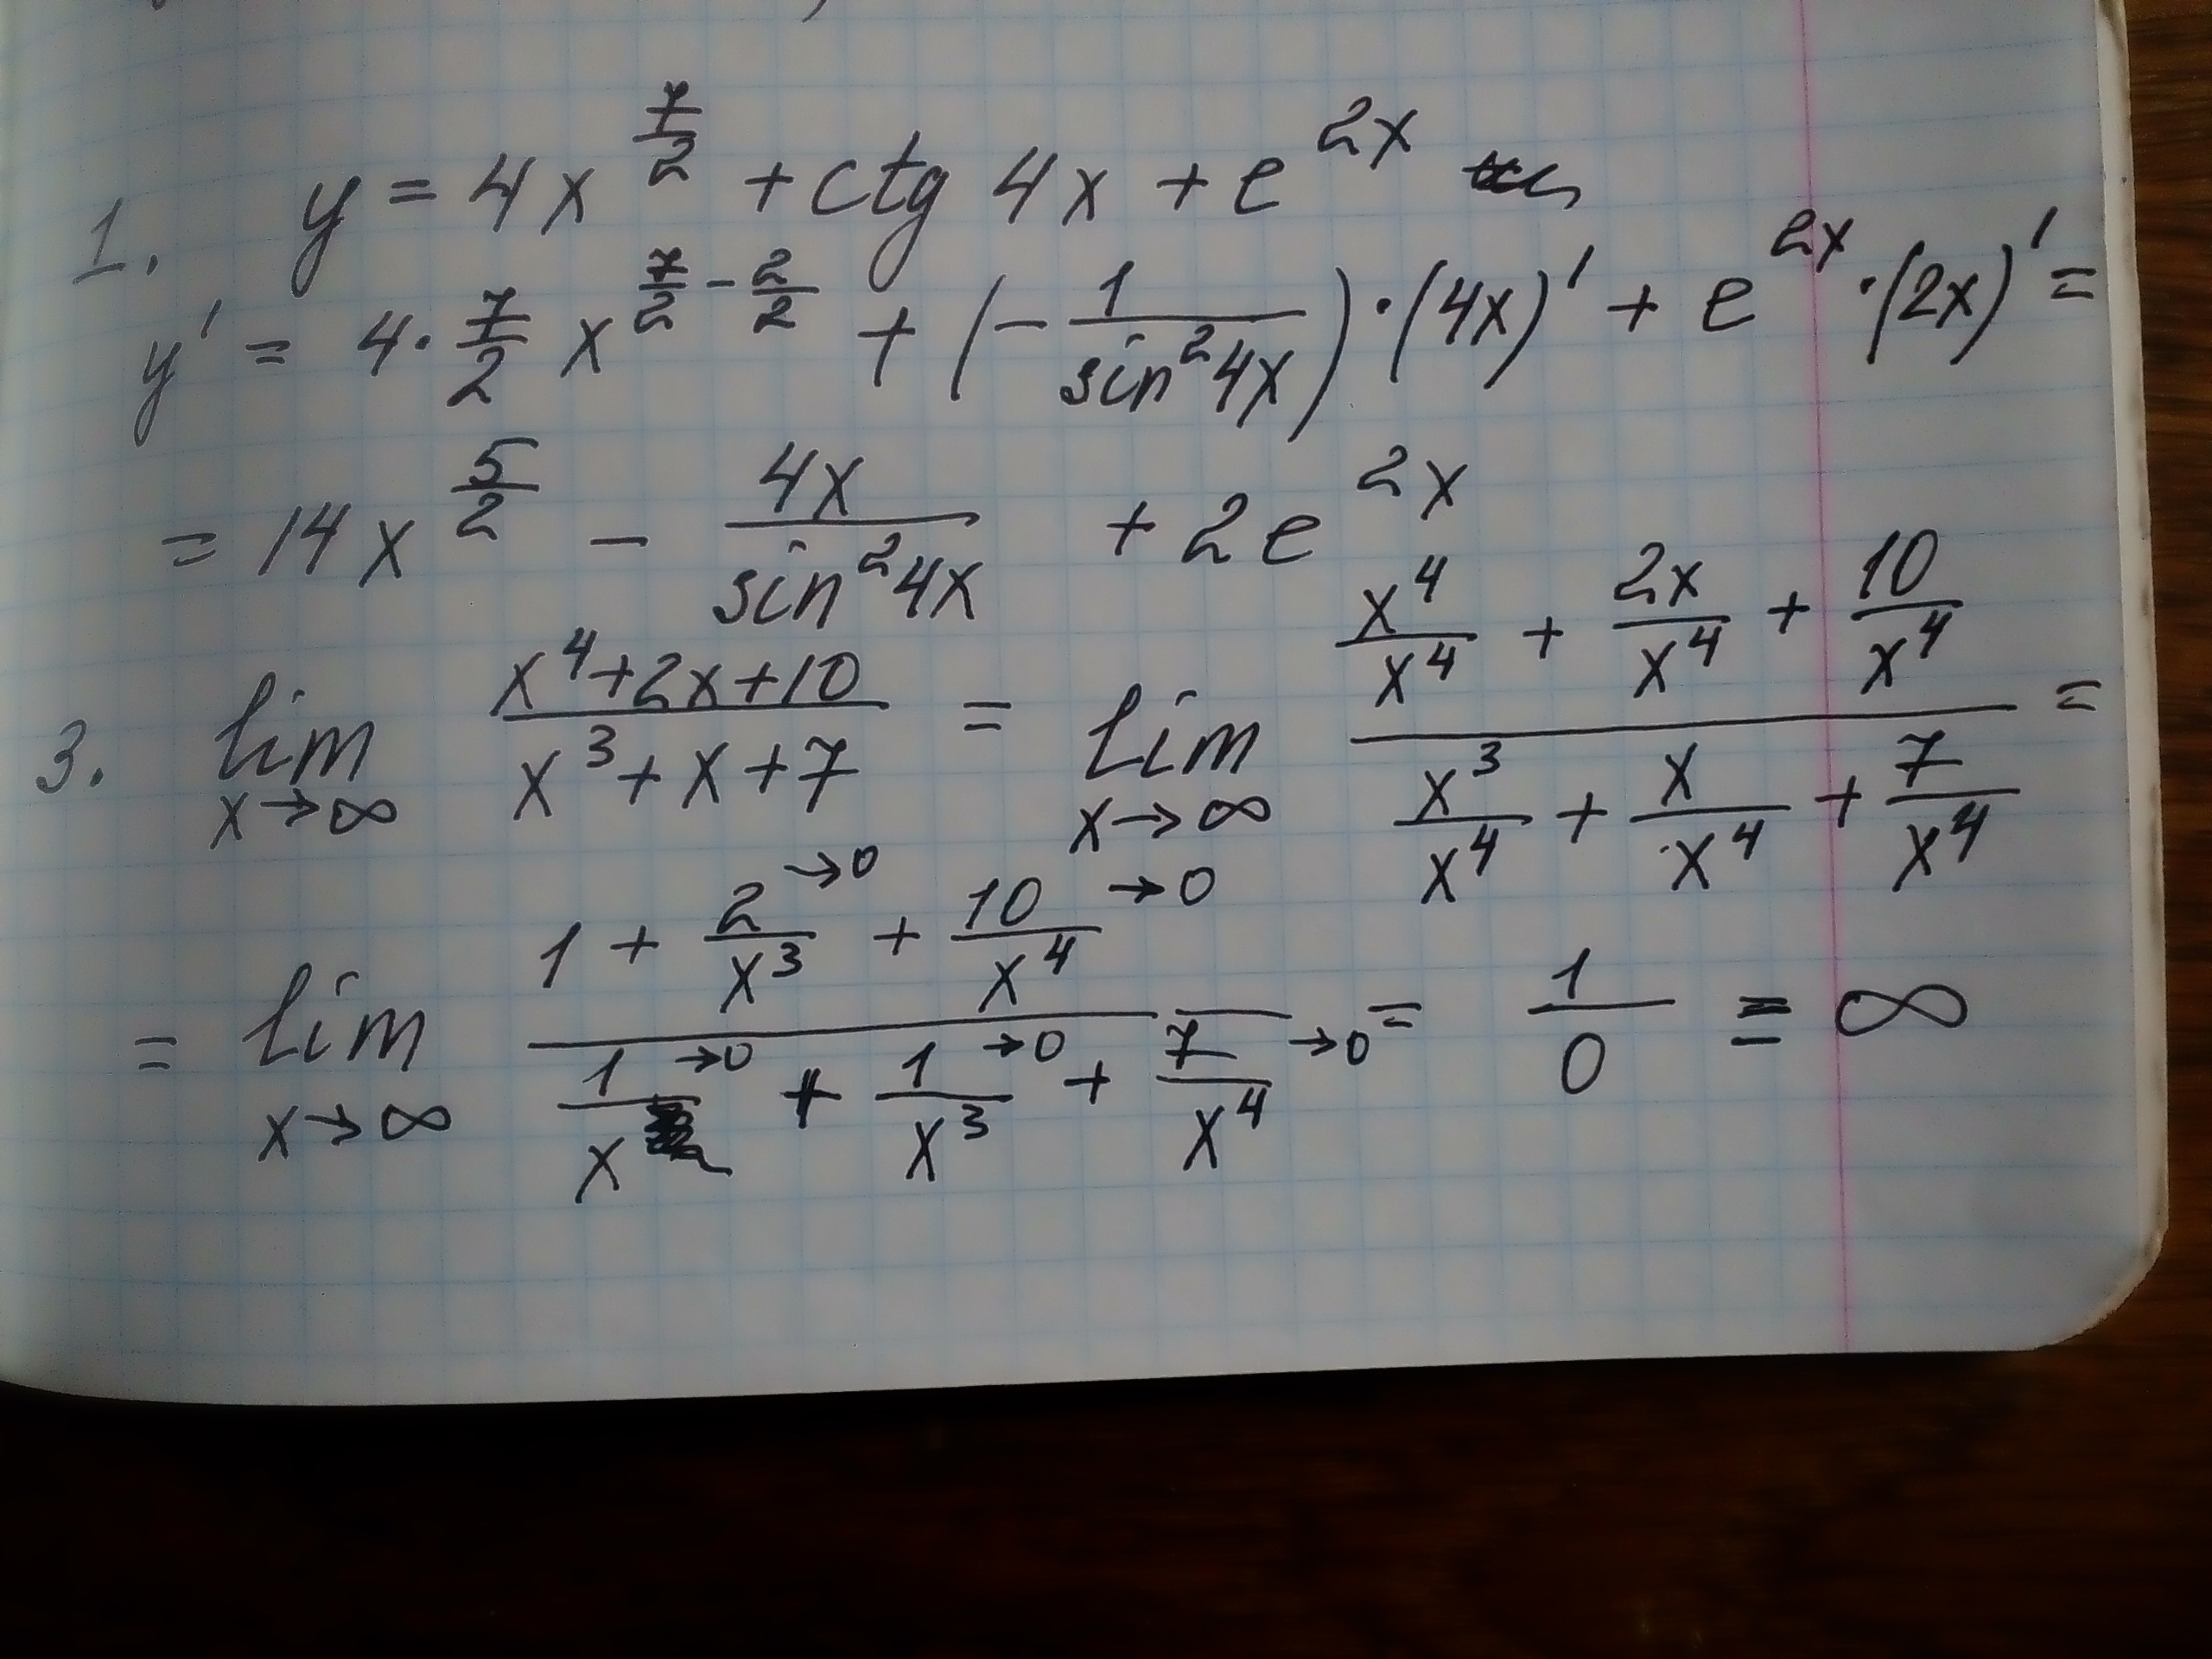 1. y = 4x^{7/2} + ctg 4x + e^{2x}
y' = 4·7/2 x^{7/2 - 2/2} + (-1/sin²4x)·(4x)' + e^{2x}·(2x)' =
= 14x^{5/2} - 4x/sin²4x + 2e^{2x}
3. lim_{x→∞} (x⁴+2x+10)/(x³+x+7) = lim_{x→∞} (x⁴/x⁴ + 2x/x⁴ + 10/x⁴)/(x³/x⁴ + x/x⁴ + 7/x⁴) =
= lim_{x→∞} (1 + 2/x³ →0 + 10/x⁴ →0)/(1/x →0 + 1/x³ →0 + 7/x⁴ →0) = 1/0 = ∞